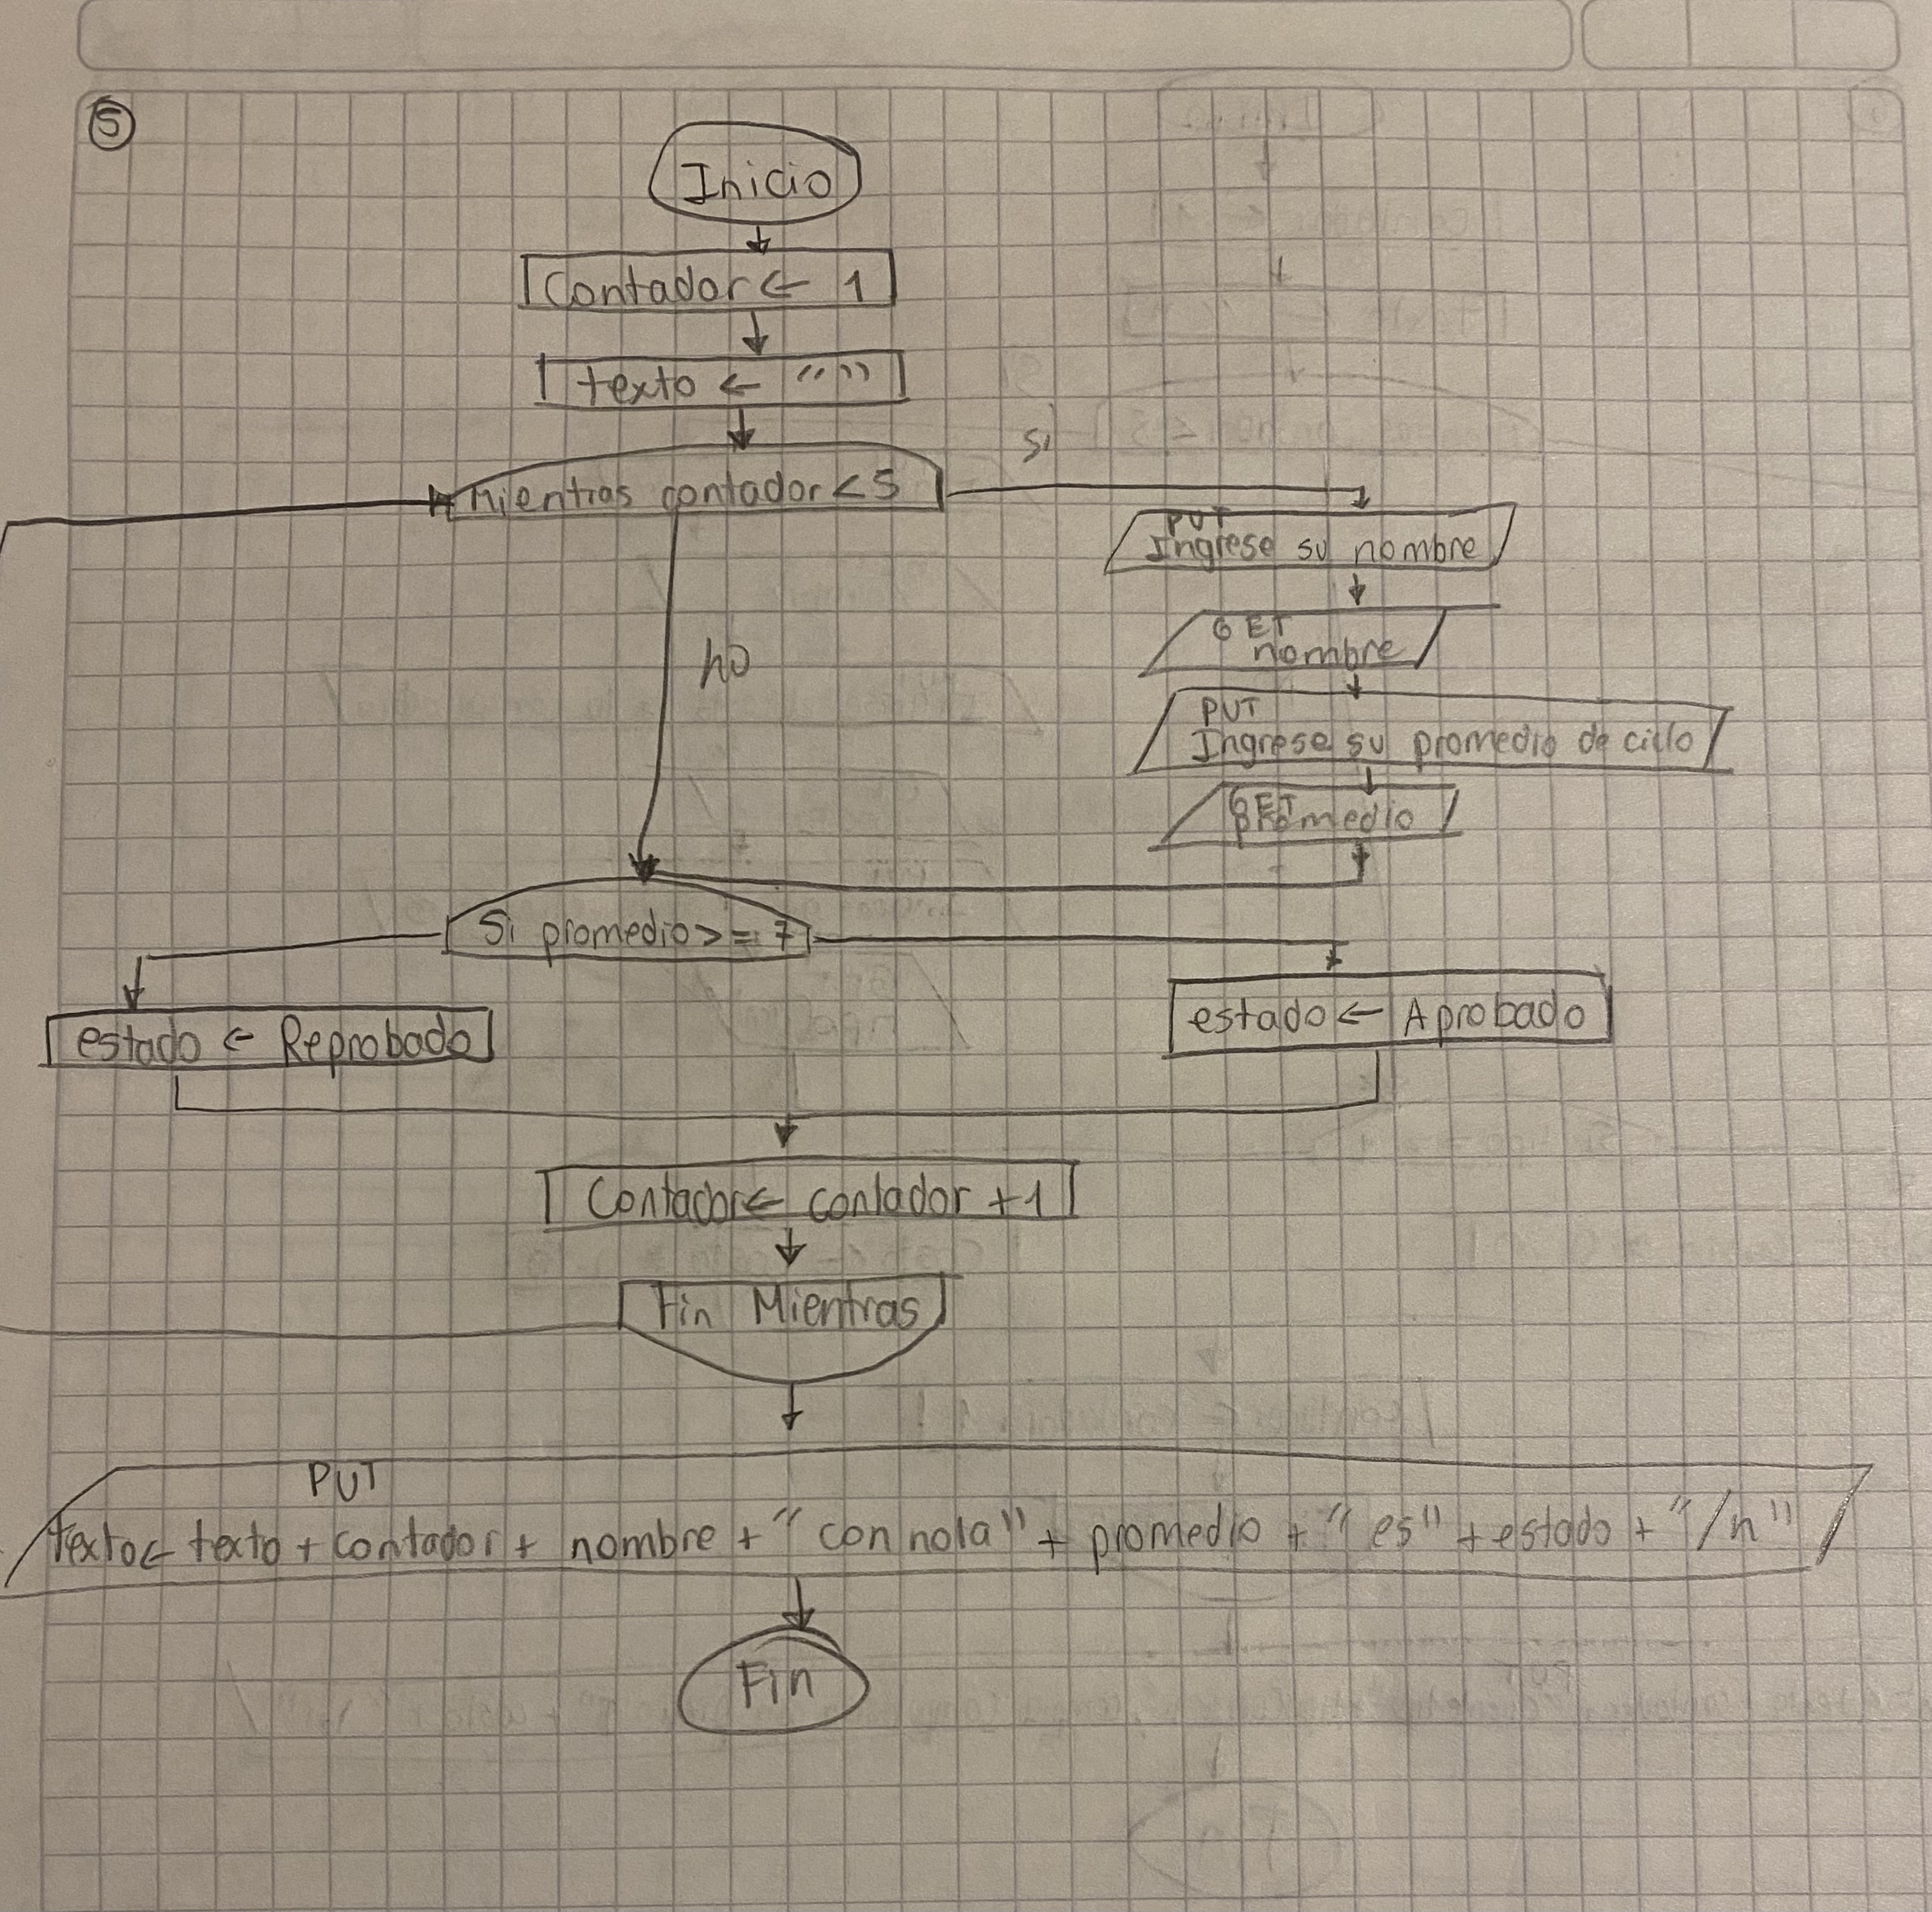 5
Inicio
Contador ← 1
texto ← “ ”
Mientras contador < 5
si
PUT
Ingrese su nombre
GET
nombre
no
PUT
Ingrese su promedio de ciclo
GET
promedio
Si promedio >= 7
estado ← Reprobado
estado ← Aprobado
Contador ← contador + 1
Fin Mientras
PUT
Texto ← texto + contador + nombre + “con nota” + promedio + “es” + estado + “/n”
Fin